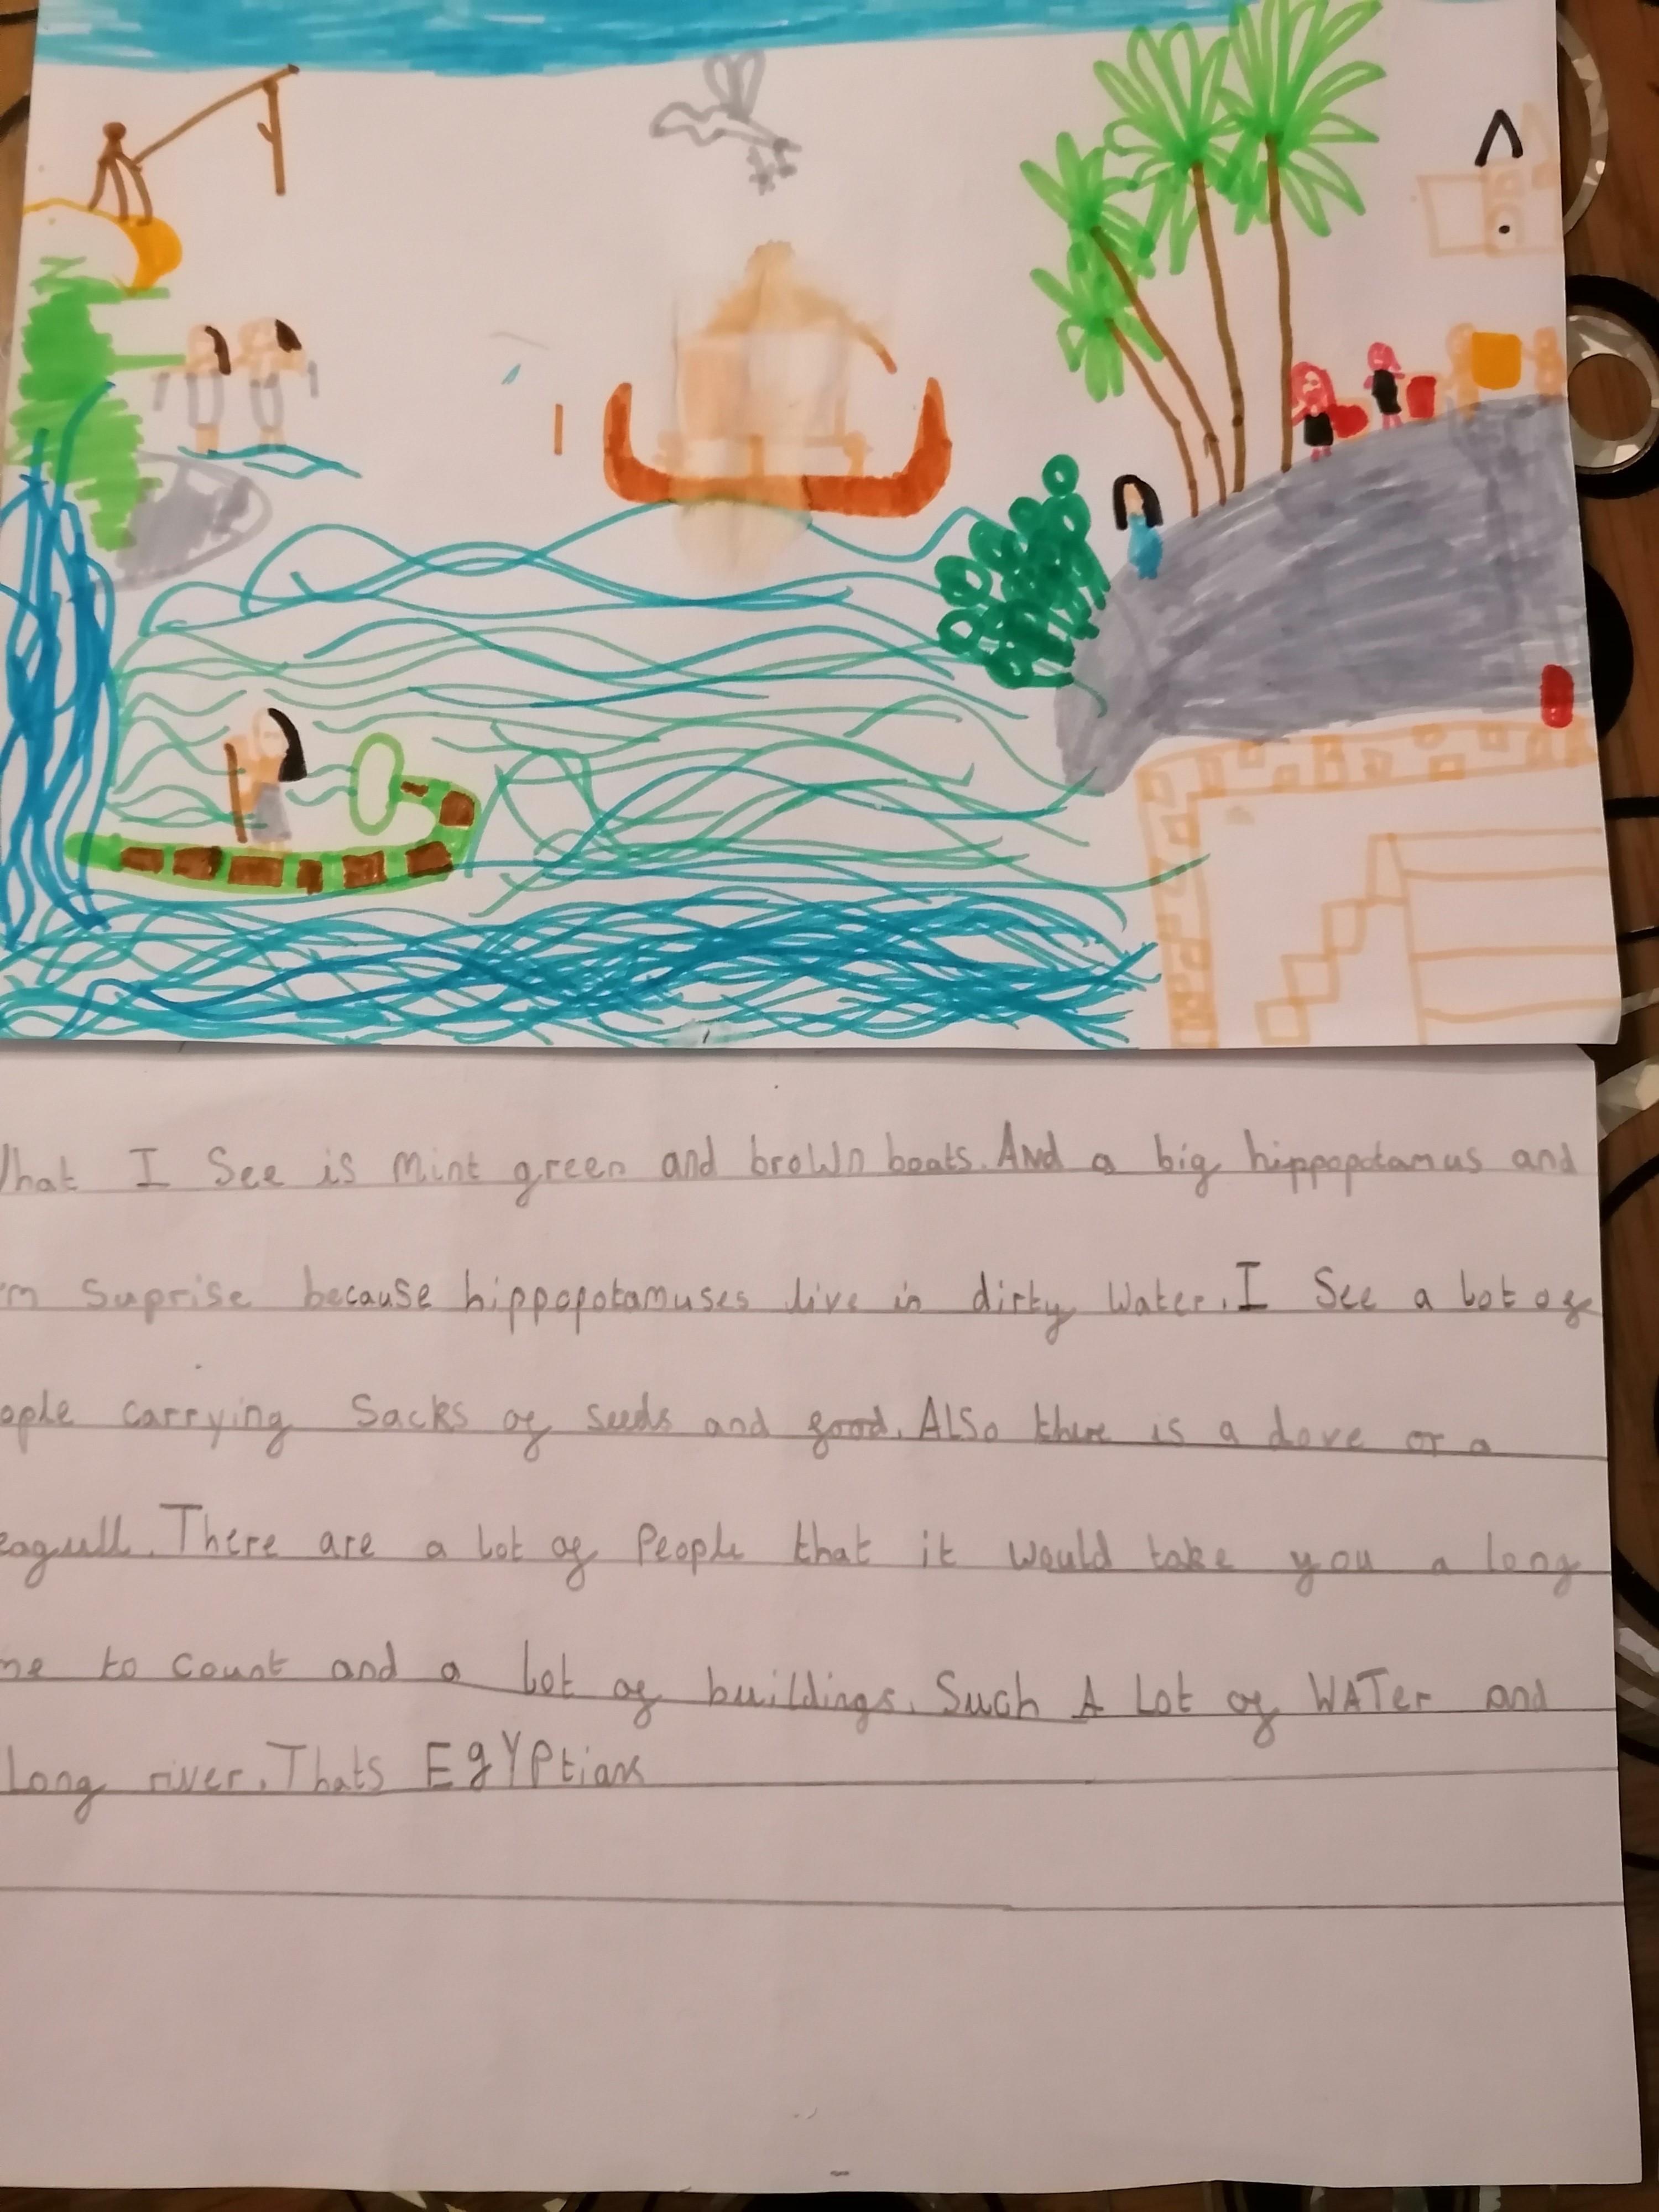 What I See is mint green and brown boats. And a big hippopotamus and
'm Suprise because hippopotamuses live in dirty Water. I See a lot of
ople carrying Sacks of seeds and food. ALSo there is a dove or a
eagull. There are a lot of People that it would take you a long
me to count and a lot of buildings. Such A Lot of WATer and
Long river. Thats EgYPtian